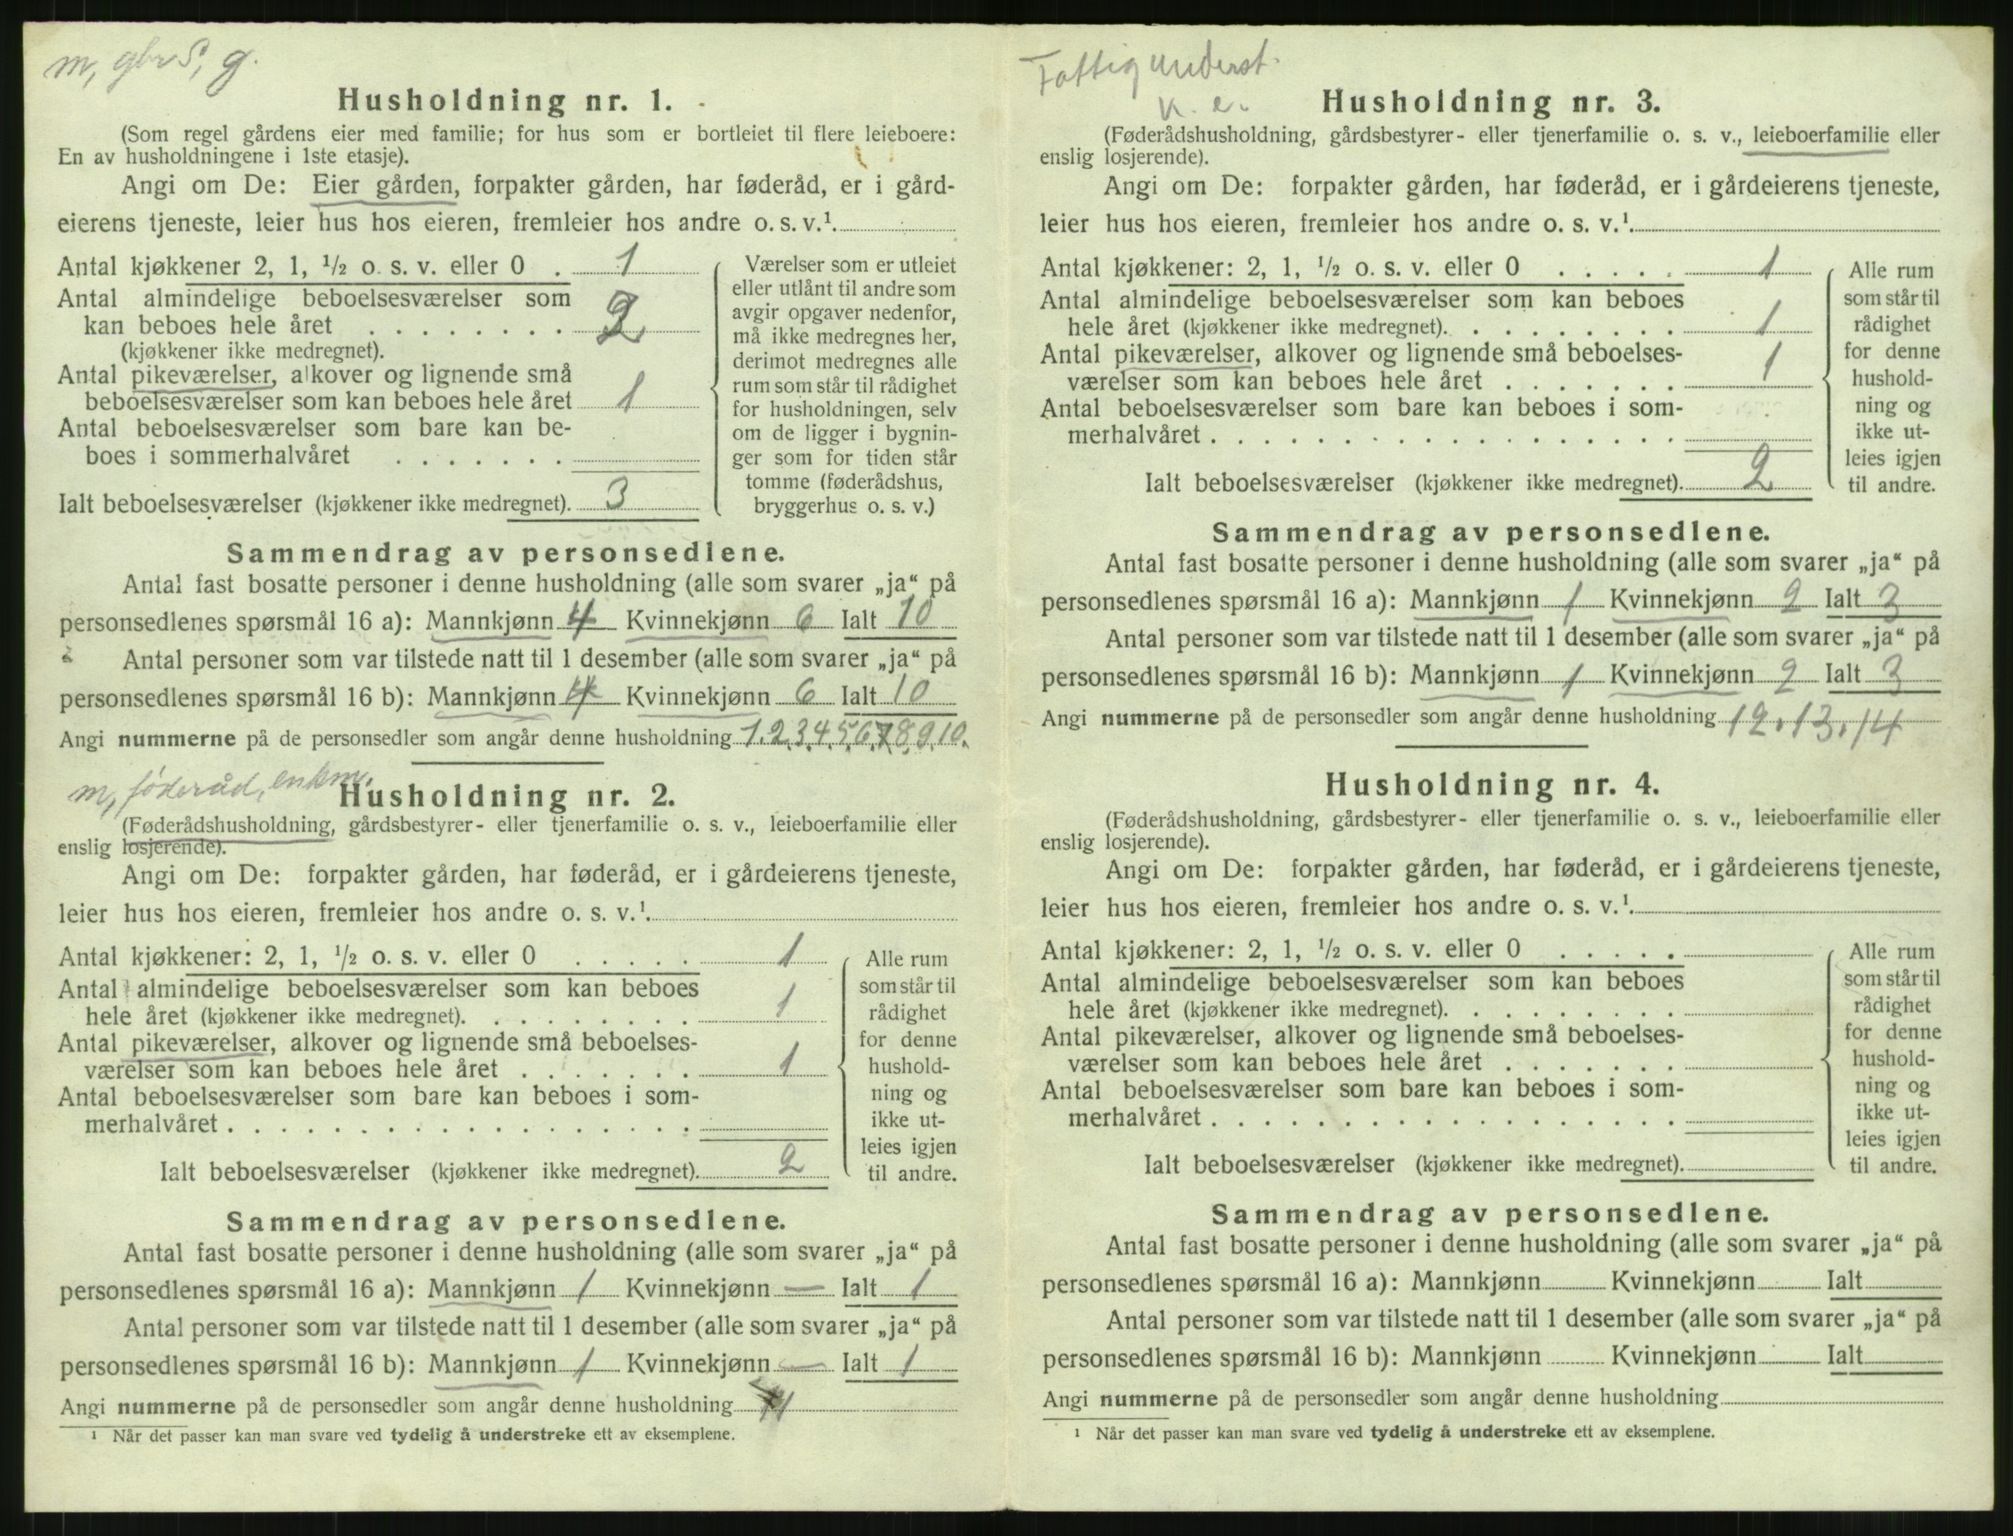 m, gbr S, g.
Husholdning nr. 1.
(Som regel gårdens eier med familie; for hus som er bortleiet til flere leieboere:
En av husholdningene i 1ste etasje).
Angi om De: Eier gården, forpakter gården, har føderåd, er i gård-
eierens tjeneste, leier hus hos eieren, fremleier hos andre o. s. v.¹
Antal kjøkkener 2, 1, ½ o. s. v. eller 0 . 1
Antal almindelige beboelsesværelser som
kan beboes hele året . . . . . . . . 2
(kjøkkener ikke medregnet).
Antal pikeværelser, alkover og lignende små
beboelsesværelser som kan beboes hele året 1
Antal beboelsesværelser som bare kan be-
boes i sommerhalvåret . . . . . . .
Ialt beboelsesværelser (kjøkkener ikke medregnet). 3
Værelser som er utleiet
eller utlånt til andre som
avgir opgaver nedenfor,
må ikke medregnes her,
derimot medregnes alle
rum som står til rådighet
for husholdningen, selv
om de ligger i bygnin-
ger som for tiden står
tomme (føderådshus,
bryggerhus o. s. v.)
Sammendrag av personsedlene.
Antal fast bosatte personer i denne husholdning (alle som svarer „ja“ på
personsedlenes spørsmål 16 a): Mannkjønn 4 Kvinnekjønn 6 Ialt 10
Antal personer som var tilstede natt til 1 desember (alle som svarer „ja“ på
personsedlenes spørsmål 16 b): Mannkjønn 4 Kvinnekjønn 6 Ialt 10
Angi nummerne på de personsedler som angår denne husholdning 1.2.3.4.5.6.7.8.9.10.
m, føderåd, enkm.
Husholdning nr. 2.
(Føderådshusholdning, gårdsbestyrer- eller tjenerfamilie o. s. v., leieboerfamilie eller
enslig losjerende).
Angi om De: forpakter gården, har føderåd, er i gårdeierens tjeneste,
leier hus hos eieren, fremleier hos andre o. s. v.¹
Antal kjøkkener: 2, 1, ½ o. s. v. eller 0 . . . . . 1
Antal almindelige beboelsesværelser som kan beboes
hele året (kjøkkener ikke medregnet). . . . . . . . . 1
Antal pikeværelser, alkover og lignende små beboelses-
værelser som kan beboes hele året . . . . . . . 1
Antal beboelsesværelser som bare kan beboes i som-
merhalvåret . . . . . . . . . . . . . . . . . .
Ialt beboelsesværelser (kjøkkener ikke medregnet). 2
Alle rum
som står til
rådighet
for denne
hushold-
ning og
ikke ut-
leies igjen
til andre.
Sammendrag av personsedlene.
Antal fast bosatte personer i denne husholdning (alle som svarer „ja“ på
personsedlenes spørsmål 16 a): Mannkjønn 1 Kvinnekjønn — Ialt 1
Antal personer som var tilstede natt til 1 desember (alle som svarer „ja“ på
personsedlenes spørsmål 16 b): Mannkjønn 1 Kvinnekjønn — Ialt 1
Angi nummerne på de personsedler som angår denne husholdning 11
¹ Når det passer kan man svare ved tydelig å understreke ett av eksemplene.
Fattigunderst.
k. e.
Husholdning nr. 3.
(Føderådshusholdning, gårdsbestyrer- eller tjenerfamilie o. s. v., leieboerfamilie eller
enslig losjerende).
Angi om De: forpakter gården, har føderåd, er i gårdeierens tjeneste,
leier hus hos eieren, fremleier hos andre o. s. v.¹
Antal kjøkkener: 2, 1, ½ o. s. v. eller 0 . . . . . 1
Antal almindelige beboelsesværelser som kan beboes
hele året (kjøkkener ikke medregnet). . . . . . . . . 1
Antal pikeværelser, alkover og lignende små beboelses-
værelser som kan beboes hele året . . . . . . . 1
Antal beboelsesværelser som bare kan beboes i som-
merhalvåret . . . . . . . . . . . . . . . . . .
Ialt beboelsesværelser (kjøkkener ikke medregnet). 2
Alle rum
som står til
rådighet
for denne
hushold-
ning og
ikke ut-
leies igjen
til andre.
Sammendrag av personsedlene.
Antal fast bosatte personer i denne husholdning (alle som svarer „ja“ på
personsedlenes spørsmål 16 a): Mannkjønn 1 Kvinnekjønn 2 Ialt 3
Antal personer som var tilstede natt til 1 desember (alle som svarer „ja“ på
personsedlenes spørsmål 16 b): Mannkjønn 1 Kvinnekjønn 2 Ialt 3
Angi nummerne på de personsedler som angår denne husholdning 12.13.14
Husholdning nr. 4.
(Føderådshusholdning, gårdsbestyrer- eller tjenerfamilie o. s. v., leieboerfamilie eller
enslig losjerende).
Angi om De: forpakter gården, har føderåd, er i gårdeierens tjeneste,
leier hus hos eieren, fremleier hos andre o. s. v.¹
Antal kjøkkener: 2, 1, ½ o. s. v. eller 0 . . . . .
Antal almindelige beboelsesværelser som kan beboes
hele året (kjøkkener ikke medregnet). . . . . . . . .
Antal pikeværelser, alkover og lignende små beboelses-
værelser som kan beboes hele året . . . . . . .
Antal beboelsesværelser som bare kan beboes i som-
merhalvåret . . . . . . . . . . . . . . . . . .
Ialt beboelsesværelser (kjøkkener ikke medregnet).
Alle rum
som står til
rådighet
for denne
hushold-
ning og
ikke ut-
leies igjen
til andre.
Sammendrag av personsedlene.
Antal fast bosatte personer i denne husholdning (alle som svarer „ja“ på
personsedlenes spørsmål 16 a): Mannkjønn Kvinnekjønn Ialt
Antal personer som var tilstede natt til 1 desember (alle som svarer „ja“ på
personsedlenes spørsmål 16 b): Mannkjønn Kvinnekjønn Ialt
Angi nummerne på de personsedler som angår denne husholdning
¹ Når det passer kan man svare ved tydelig å understreke ett av eksemplene.